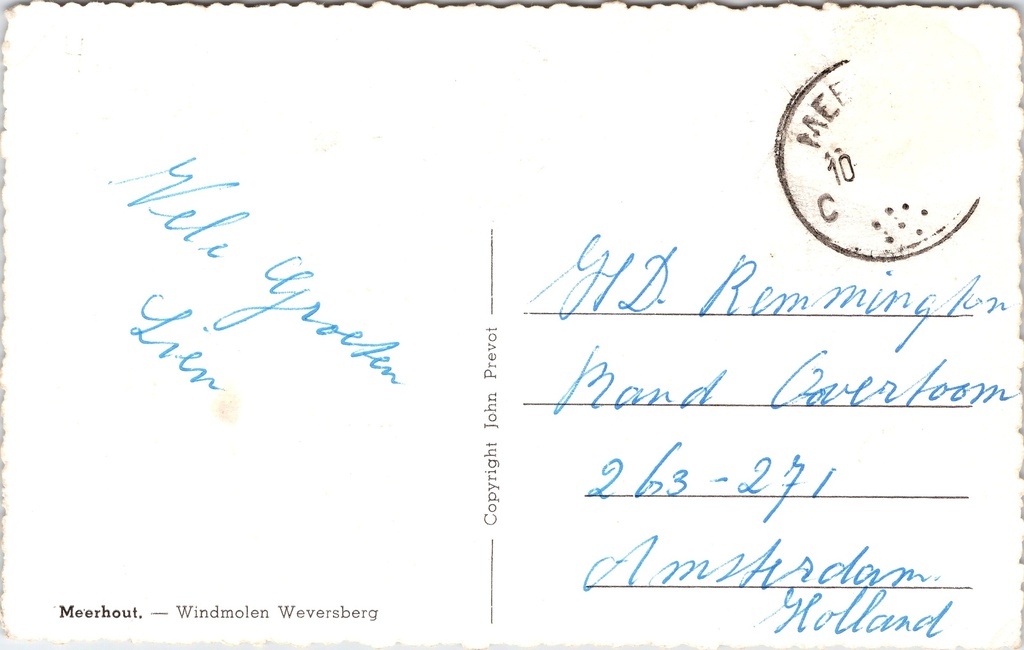 Vele Groeten
Lien
MEE
10
C
Copyright John Prevot
HD. Remmington
Rand Overtoom
263-271
Amsterdam.
Holland
Meerhout. — Windmolen Weversberg